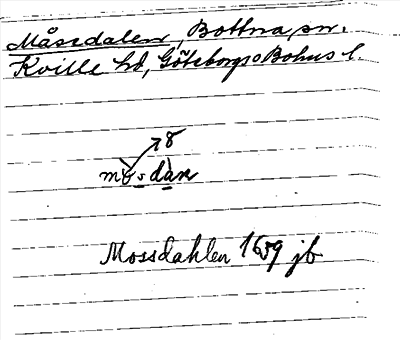 Måssdalen, Bottna sn.
Kville hd, Göteborgs o Bohus l.
Mossdahlen 1659 jb